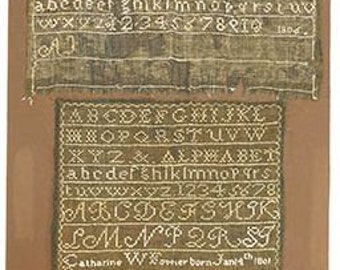 abcdefghiklmnopqrstuvw
wxyz1234567891
1806
A
ABCDEFGHIJKL
MNOPQRSTUVW
XYZ & ALPHABET
abcdefghiklmnopqrs
tuvwwxyz12345678
ABCDEFGHIJK
LMNPQRST
Catharine W born Jan 4th 1801